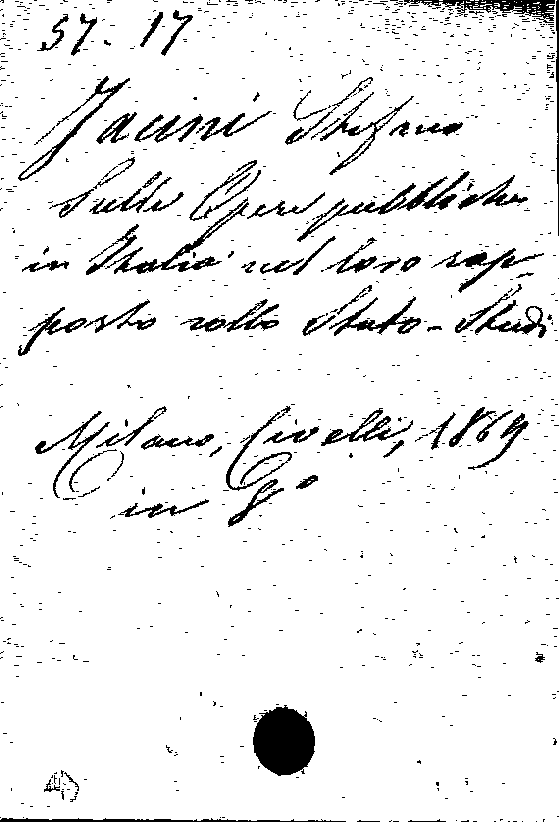 57. 17
Jacini Stefano
Sulle Opere pubbliche
in Italia nel loro rap-
porto collo Stato - Studi
Milano, Civelli, 1869
in 8°